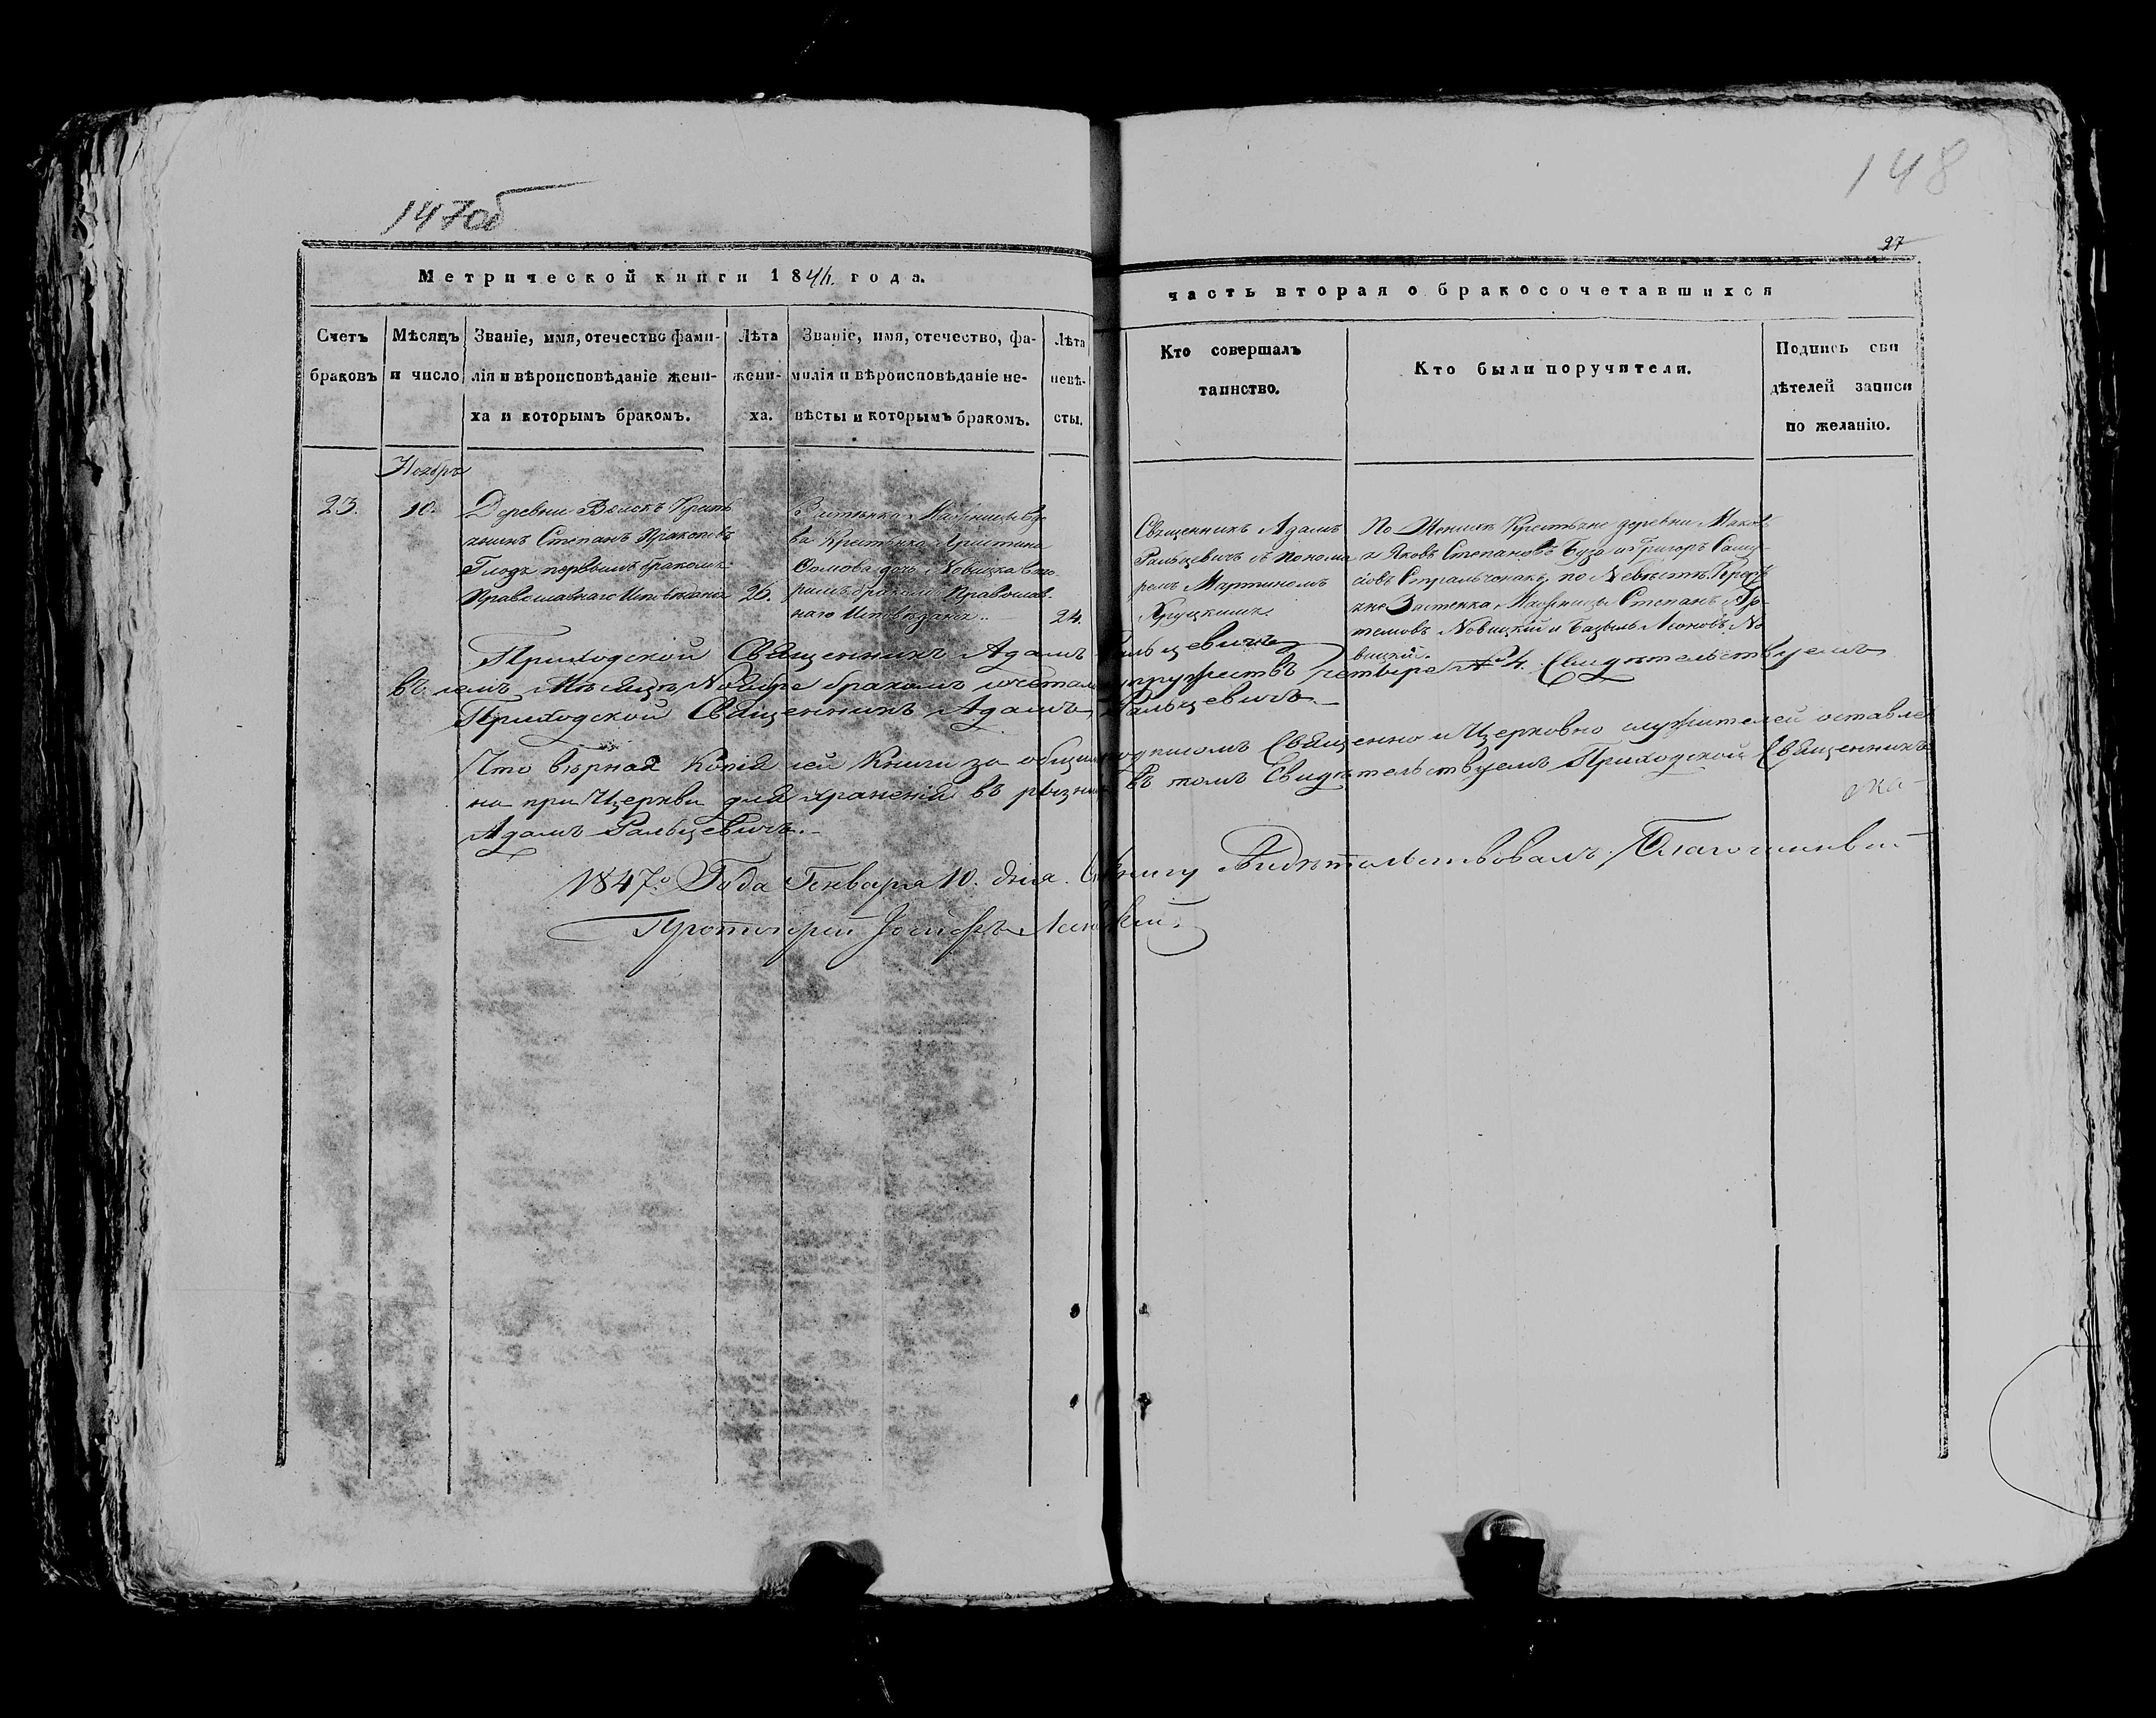 147об
148
27
Метрической книги 1846. года.
часть вторая о бракосочетавшихся
Счетъ
браковъ
Мѣсяцъ
и число
Званіе, имя, отечество фами-
лія и вѣроисповѣданіе жени-
ха и которымъ бракомъ.
Лѣта
жени-
ха.
Званіе, имя, отечество, фа-
милія и вѣроисповѣданіе не-
вѣсты и которымъ бракомъ.
Лѣта
невѣ-
сты.
Кто совершалъ
таинство.
Кто были поручители.
Подпись сви
дѣтелей записи
по желанію.
Ноябрь
23.
10.
Деревни Крестъ
янинъ Степанъ Пракоповъ
первымъ бракомъ
Православнаго Исповѣданія
26.
Застѣнка вдо
ва Крестьянка Христина
дочь Новицка вто
рымъ бракомъ Православ
наго Исповѣданія..
24.
Священникъ Адамъ
Ральцевичъ съ понома
ремъ Мартиномъ
Круцкимъ.
По Женихѣ Крестьяне деревни Маков
а Яковъ Степановъ Буза и Григоръ
по Невѣстѣ Крестъ
яне Застенка Степанъ Ар-
темовъ Новицкій и Базыль Леоновъ Но
вицкій.
Приходской Священникъ Адамъ Ральцевичъ
въ семъ Мѣсяцѣ Ноябре бракомъ сочетало супружествъ четыре № 4. Свидѣтельствуемъ
Приходской Священникъ Адамъ Ральцевичъ
Что вѣрная Копія сей Книги за общимъ подписомъ Священно и Церковно служителей оставле
на при Церкви для храненія въ рызницѣ въ томъ Свидѣтельствуемъ Приходской Священникъ
Адамъ Ральцевичъ.
1847.о Года Генваря 10. дня. Сію Книгу Свидѣтельствовалъ Благочинный
Протоіерей Іосифъ